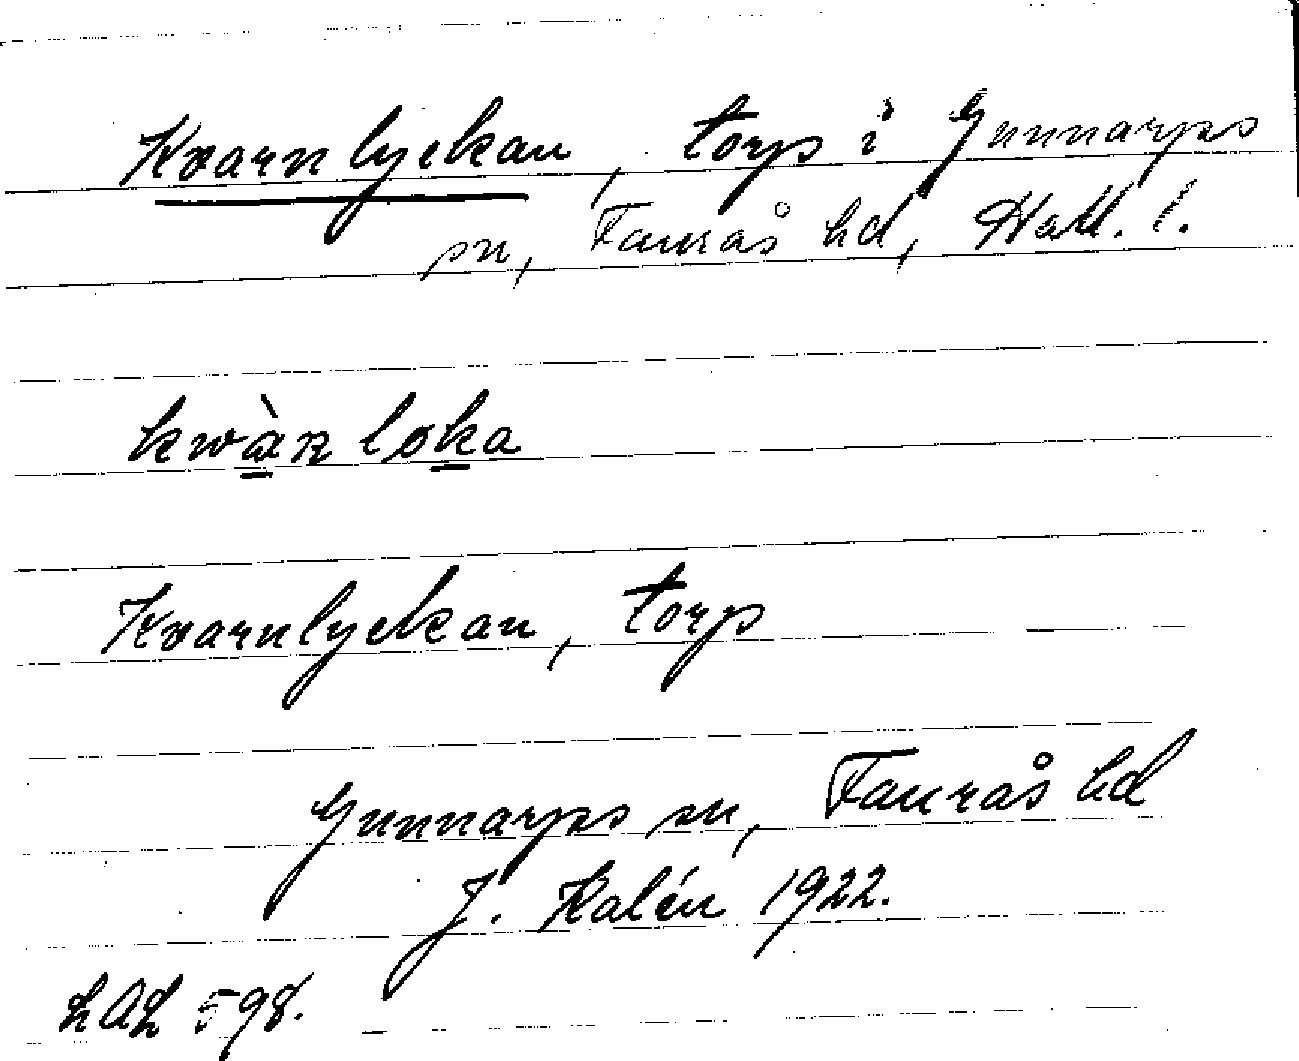 Kvarnlyckan, torp i Gunnarps
sn, Faurås hd, Hall. l.
kwàꞃ løka
Kvarnlyckan, torp
Gunnarps sn, Faurås hd
J. Kalén 1922.
LAL 598.